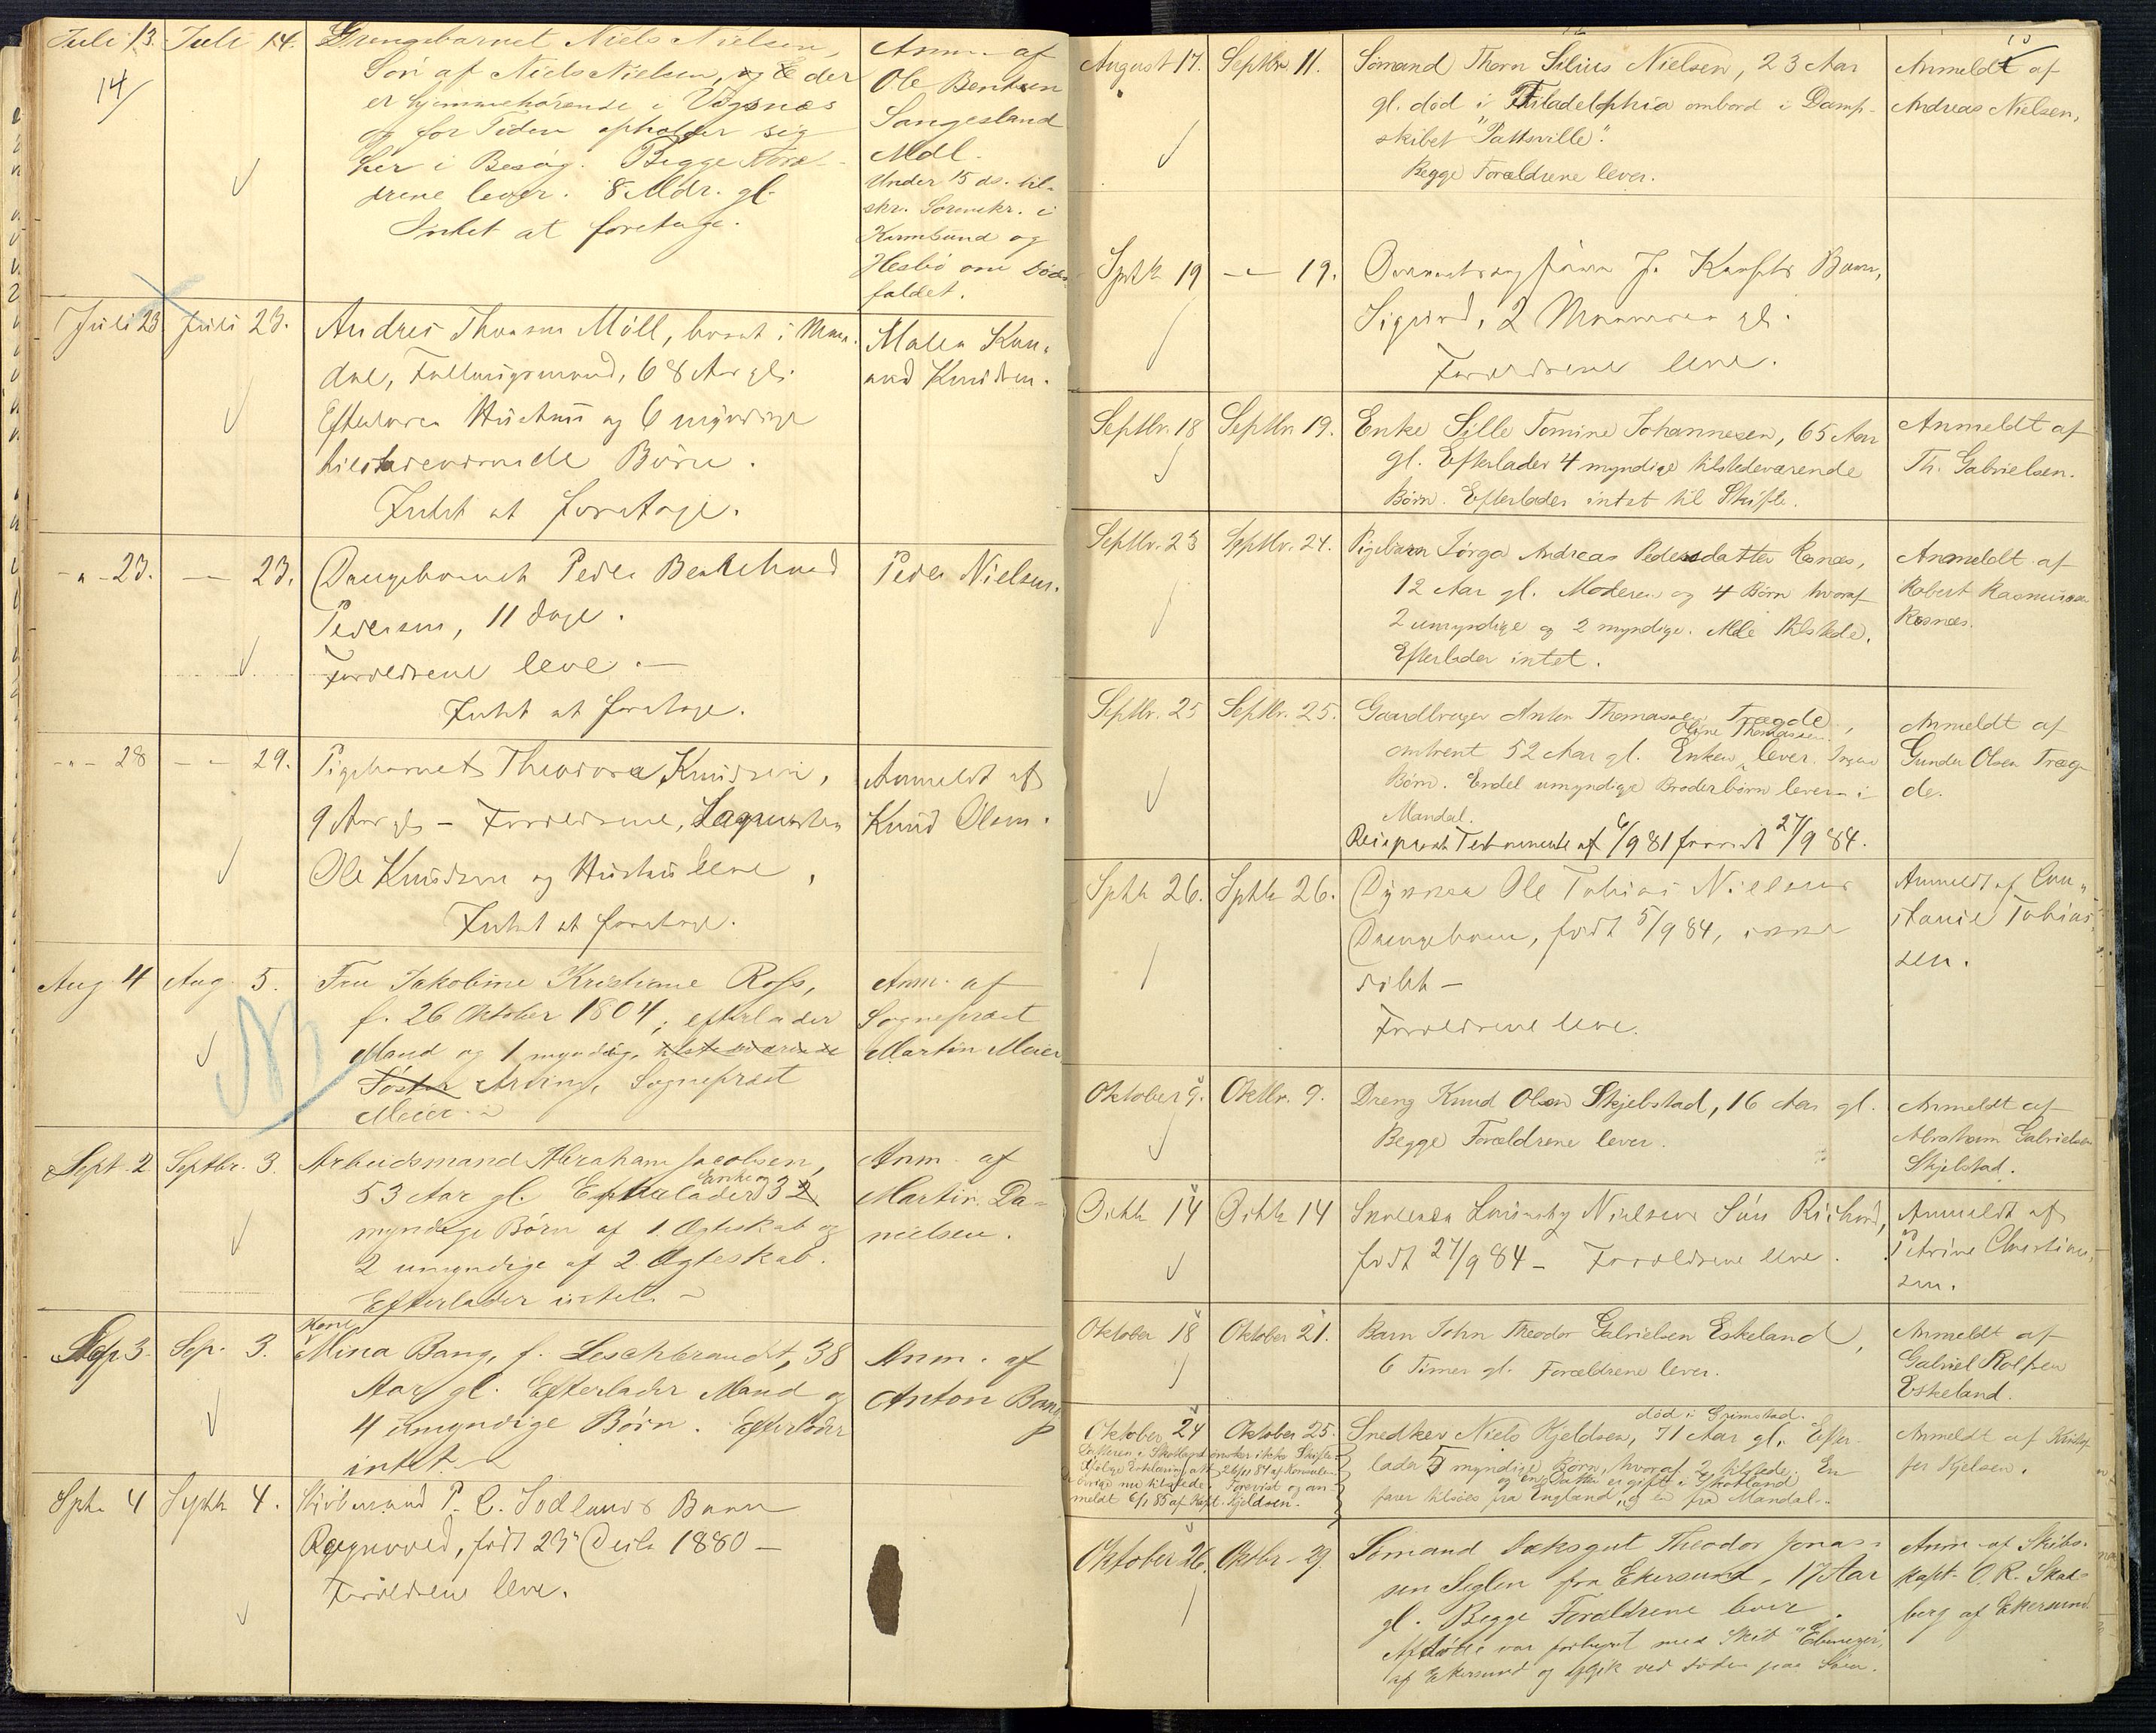 Juli 13. Juli 14. Drengebarnet Niels Nielsen, Anm. af
14/ Søn af Niels Nielsen, der Ole Bentsen
er hjemmehørende i Vågsnæs Sangesland
og for Tiden opholder sig Mdl.
her i Besøg. Begge Foræl- Under 15 ds. til-
drene lever. 8 Mdr. gl. skr. Sorenskr. i
Intet at foretage. Karmsund og
Hesbø om Døds-
faldet.
Juli 23 Juli 23. Andres Thomsen Møll, boende i Man- Malen Kon-
dal, Fattigmand, 68 Aar gl. rad Knudsen.
Efterlader Hustru og 6 myndige
tilstedeværende Børn.
Intet at foretage.
-"- 23. -"- 23. Drengebarnet Peder Berthud Peder Nielsen.
Pedersen, 11 Dage.
Forældrene leve. —
Intet at foretage.
-"- 28 -"- 29. Pigebarnet Theodora Knudsen, Anmeldt af
9 Aar gl – Forældrene, Knud Olsen.
Ole Knudsen og Hustru leve,
Intet at foretage.
Aug. 4 Aug. 5. Fru Jakobine Kristiane Ross, Anm. af
f. 26 Oktober 1804; efterlader Sogneprest
Mand og 1 myndig, tilstedeværende Martin Meier
Søster Arving, Sogneprest
Meier.
Sept. 2 Septbr. 3. Arbeidsmand Abraham Jacobsen, Anm. af
53 Aar gl. Efterlader Enke og 3 2 Martin Da-
myndige Børn af 1. Ægteskab og nielsen.
2 umyndige af 2 Ægteskab.
Efterlader intet.
Kone
Sep 3. Sep. 3. Mina Bang, f. Leschbrandt, 38 Anm. af
Aar gl. Efterlader Mand og Anton Bang
4 umyndige Børn. Efterlader
intet
Sptr. 4 Septbr 4. P. C. Sødlands Barn
Ragnvald, født 23de Decbr 1880 —
Forældrene leve.
August 17. Septbr 11. Sømand Thorn Silius Nielsen, 23 Aar Anmeldt af
gl. død i Filadelphia ombord i Damp- Andreas Nielsen,
skibet "Pattsville".
Begge Forældrene lever.
Sptbr 19 -"- 19. J. Barn,
Sigurd, 2 Maaneder gl.
Forældrene leve.
Septbr. 18 Septbr 19. Enke Sille Tomine Johannesen, 65 Aar Anmeldt af
gl. Efterlader 4 myndige tilstedeværende Th. Gabrielsen.
Børn. Efterlader intet til Skifte.
Septbr. 23 Septbr. 24. Pigebarn Jørga Andreas Pedersdatter Rosnæs, Anmeldt af
12 Aar gl. Moderen og 4 Børn hvoraf Robert Rasmussen
2 umyndige og 2 myndige. Alle tilstede. Rosnæs.
Efterlader intet.
Septbr. 25 Septbr. 25. Gaardbruger Anton Thomassen Trægde, Anmeldt af
Oline Thomassen
omtrent 52 Aar gl. Enken lever. Ingen Gunder Olsen Træg-
Børn. Endel umyndige Broderbørn lever i de.
Mandal.
Reciprokt Testamente af 6/9 81 forevist 27/9 84.
Sptbr 26. Sptbr 26. Ole Tobias Nielsens Anmeldt af Con-
Drengebarn, født 5/9 84, ikke stanse Tobias-
døbt – sen.
Forældrene leve.
Oktober 9. Oktbr. 9. Dreng Knud Olsen Skjelstad, 16 Aar gl. Anmeldt af
Begge Forældrene lever. Abraham Gabrielsen
Skjelstad.
Octbr 14 Octbr 14 Nielsens Søn Richard, Anmeldt af
født 27/9 84 – Forældrene leve. Petrine Christian-
sen.
Oktober 18 Oktober 21. Barn John Theodor Gabrielsen Eskeland, Anmeldt af
6 Timer gl. Forældrene lever. Gabriel Rolfsen
Eskeland.
død i Grimstad.
Oktober 24 Oktober 25. Snedker Niels Kjeldsen, 71 Aar gl. Efter- Anmeldt af Kristof-
lader 5 myndige Børn, hvoraf 2 tilstede. En fer Kjelsen.
og en Datter er gift i Skotland
farer tilsøes fra England, og en fra Mandal.
Datteren i Skotland ønsker ikke Skifte
ifølge Erklæring af 26/11 84 af Konsulen
øvrige nu tilstede. Forevist og an-
meldt 6/1 85 af Kapt. Kjeldsen.
Oktober 26. Oktbr. 29. Sømand Dæksgut Theodor Jonas- Anm. af Skibs-
sen Seglen fra Ekersund, 17 Aar kapt. O. R. Skad-
gl. Begge Forældrene lever. berg af Ekersund
Afdøde var forhyret med Skib "Ebenezer"
af Ekersund og afgik ved Døden paa Søen.